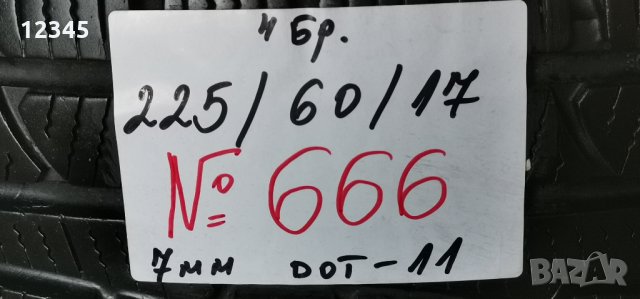 12345
4 бр.
225/60/17
№ 666
7мм DOT-11
BAZAR